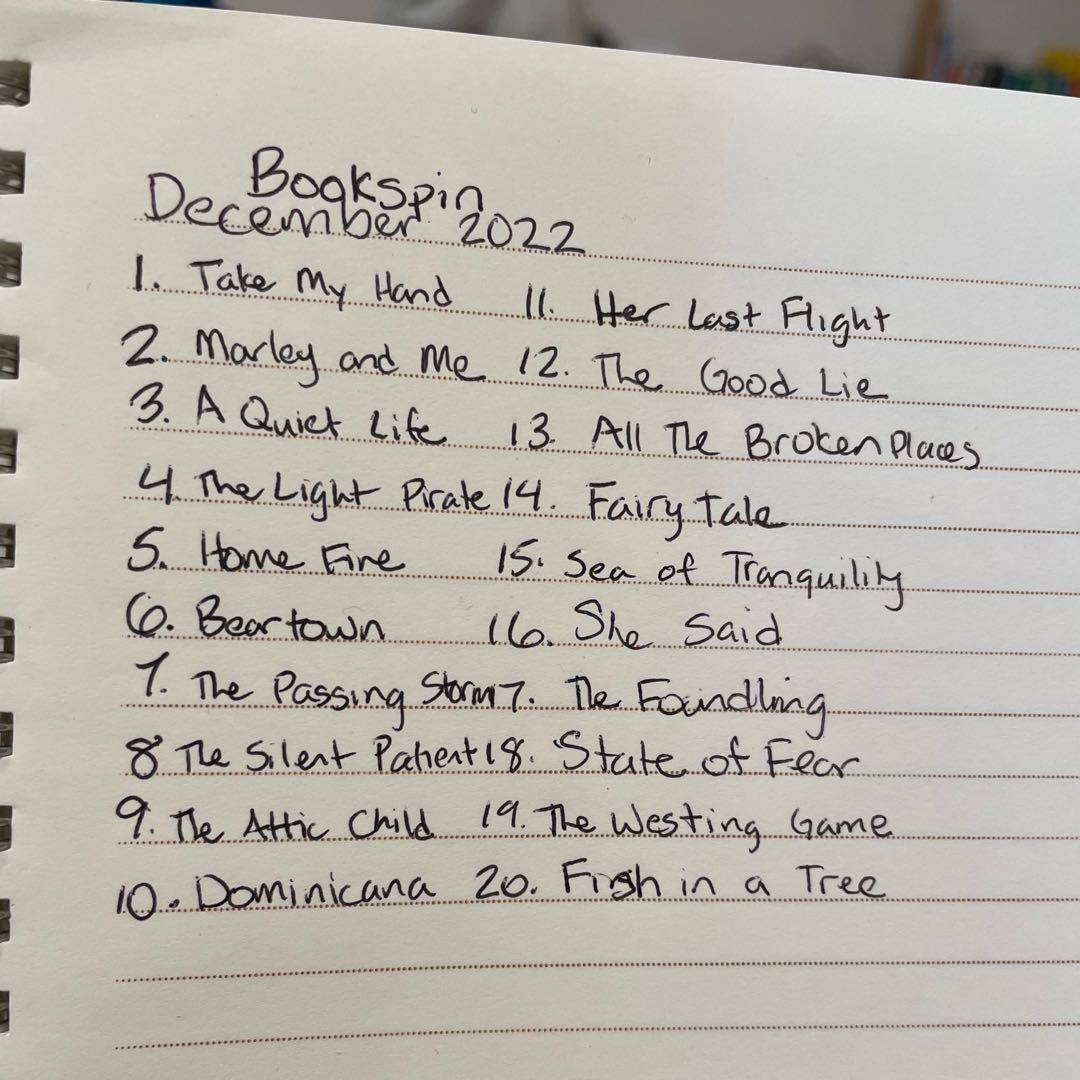 Bookspin
December 2022
1. Take My Hand 11. Her Last Flight
2. Marley and Me 12. The Good Lie
3. A Quiet Life 13. All The Broken Places
4. The Light Pirate 14. Fairy Tale
5. Home Fire 15. Sea of Tranquility
6. Beartown 16. She Said
7. The Passing Storm 17. The Foundling
8 The Silent Patient 18. State of Fear
9. The Attic Child 19. The Westing Game
10. Dominicana 20. Fish in a Tree